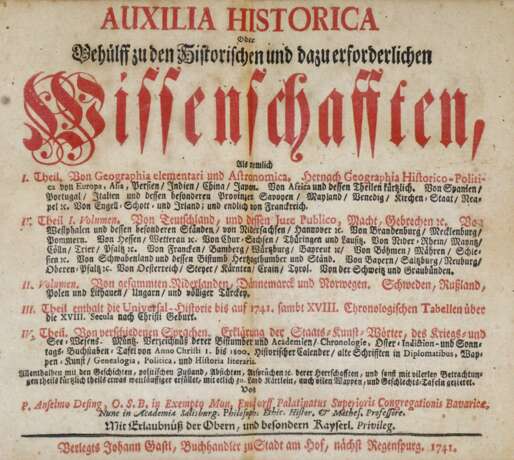 AUXILIA HISTORICA
Oder
Behülff zu den Historischen und dazu erforderlichen
Wissenschafften,
Als nemlich
I. Theil. Von Geographia elementari und Astronomica, Hernach Geographia Historico-Politi-
ca von Europa, Asia, Persien/ Indien/ China/ Japon. Von Africa und dessen Theilen kürtzlich. Von Spanien/
Portugal/ Italien und dessen besonderen Provinzen Savoyen/ Mayland/ Venedig/ Kirchen-Staat/ Nea-
pel ꝛc. Von Engel-Schott-und Irland; und endlich von Franckreich.
Theil I. Volumen. Von Teutschland, und dessen Jure Publico, Macht, Gebrechen ꝛc. Von
Westphalen und dessen besonderen Ständen/ von Nider-Sachsen/ Hannover ꝛc. Von Brandenburg/ Mecklenburg/
Pommern. Von Hessen/ Wetterau ꝛc. Von Chur-Sachsen/ Thüringen und Laußitz. Von Nider-Rhein/ Mayntz/
Cölln/ Trier/ Pfaltz ꝛc. Von Francken/ Bamberg/ Würtzburg/ Bayreut ꝛc/ Von Böhmen/ Mähren/ Schle-
sien ꝛc. Von Schwabenland und dessen Bistumb Hertzogthumber und Ständ. Von Bayern/ Saltzburg/ Neuburg/
Oberen-Pfaltz ꝛc. Von Oesterreich/ Steyer/ Kärnten/ Crain/ Tyrol. Von der Schweitz und Graubünden.
II. Volumen. Von gesammten Niderlanden, Dännemarck und Norwegen. Schweden, Rußland,
Polen und Lithauen/ Ungarn/ und völliger Türckey.
III. Theil enthalt die Universal-Historie bis auf 1741. sambt XVIII. Chronologischen Tabellen über
die XVIII. Secula nach Christi Geburt.
IV. Theil. Von verschiedenen Sprachen. Erklärung der Staats-Kunst-Wörter, des Kriegs-und
See-Wesens. Müntz. Verzeichnuß derer Bistumber und Academien/ Chronologie, Oster-Indiction-und Sonn-
tags-Buchstaben-Tafel von Anno Christi 1. bis 1800. Historischer Calender/ alte Schrifften in Diplomatibus, Wap-
pen-Kunst/ Genealogia, Politica, und Historia literaria.
Allenthalben mit den Geschichten, politischen Zustand, Absichten, Ansprüchen ꝛc. derer Herrschafften, und sonst mit vilerley Betrachtun-
gen theils kürtzlich theils etwas weitläuffiger erkläret, mit etlich 50. Land-Kärtlein, auch vilen Wappen, und Geschlechts-Tafeln gezieret.
Von
P. Anselmo Desing, O. S. B. in Exempto Mon. Ensdorff, Palatinatus Superioris Congregationis Bavaricæ,
Nunc in Academia Salisburg. Philosoph. Ethic. Histor. & Mathes. Professore.
Mit Erlaubnüß der Obern, und besondern Kayserl. Privileg.
Verlegts Johann Gastl, Buchhandler zu Stadt am Hof, nächst Regenspurg. 1741.